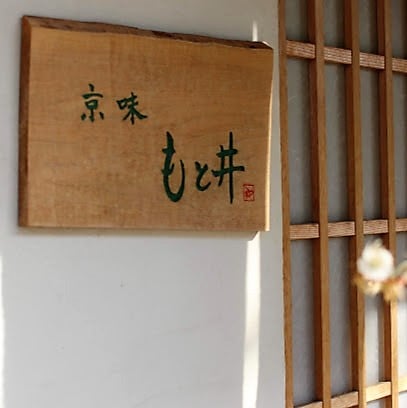 京味
もと井